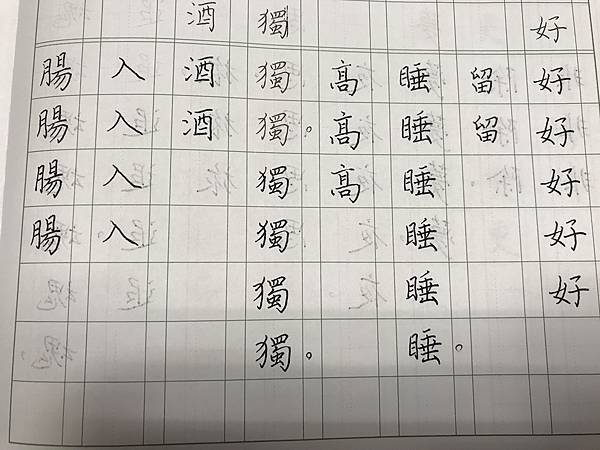 好好好好好好
留留
睡睡睡睡睡睡。
髙髙髙
獨獨獨。獨獨獨獨。
酒酒酒
入入入入
腸腸腸腸